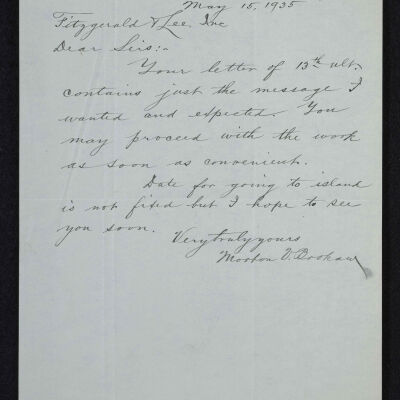 May 15, 1935
Fitzgerald & Lee, Inc
Dear Sirs:-
Your letter of 13th ult.
contains just the message I
wanted and expected. You
may proceed with the work
as soon as convenient.
Date for going to island
is not fixed but I hope to see
you soon.
Very truly yours
Morton V.